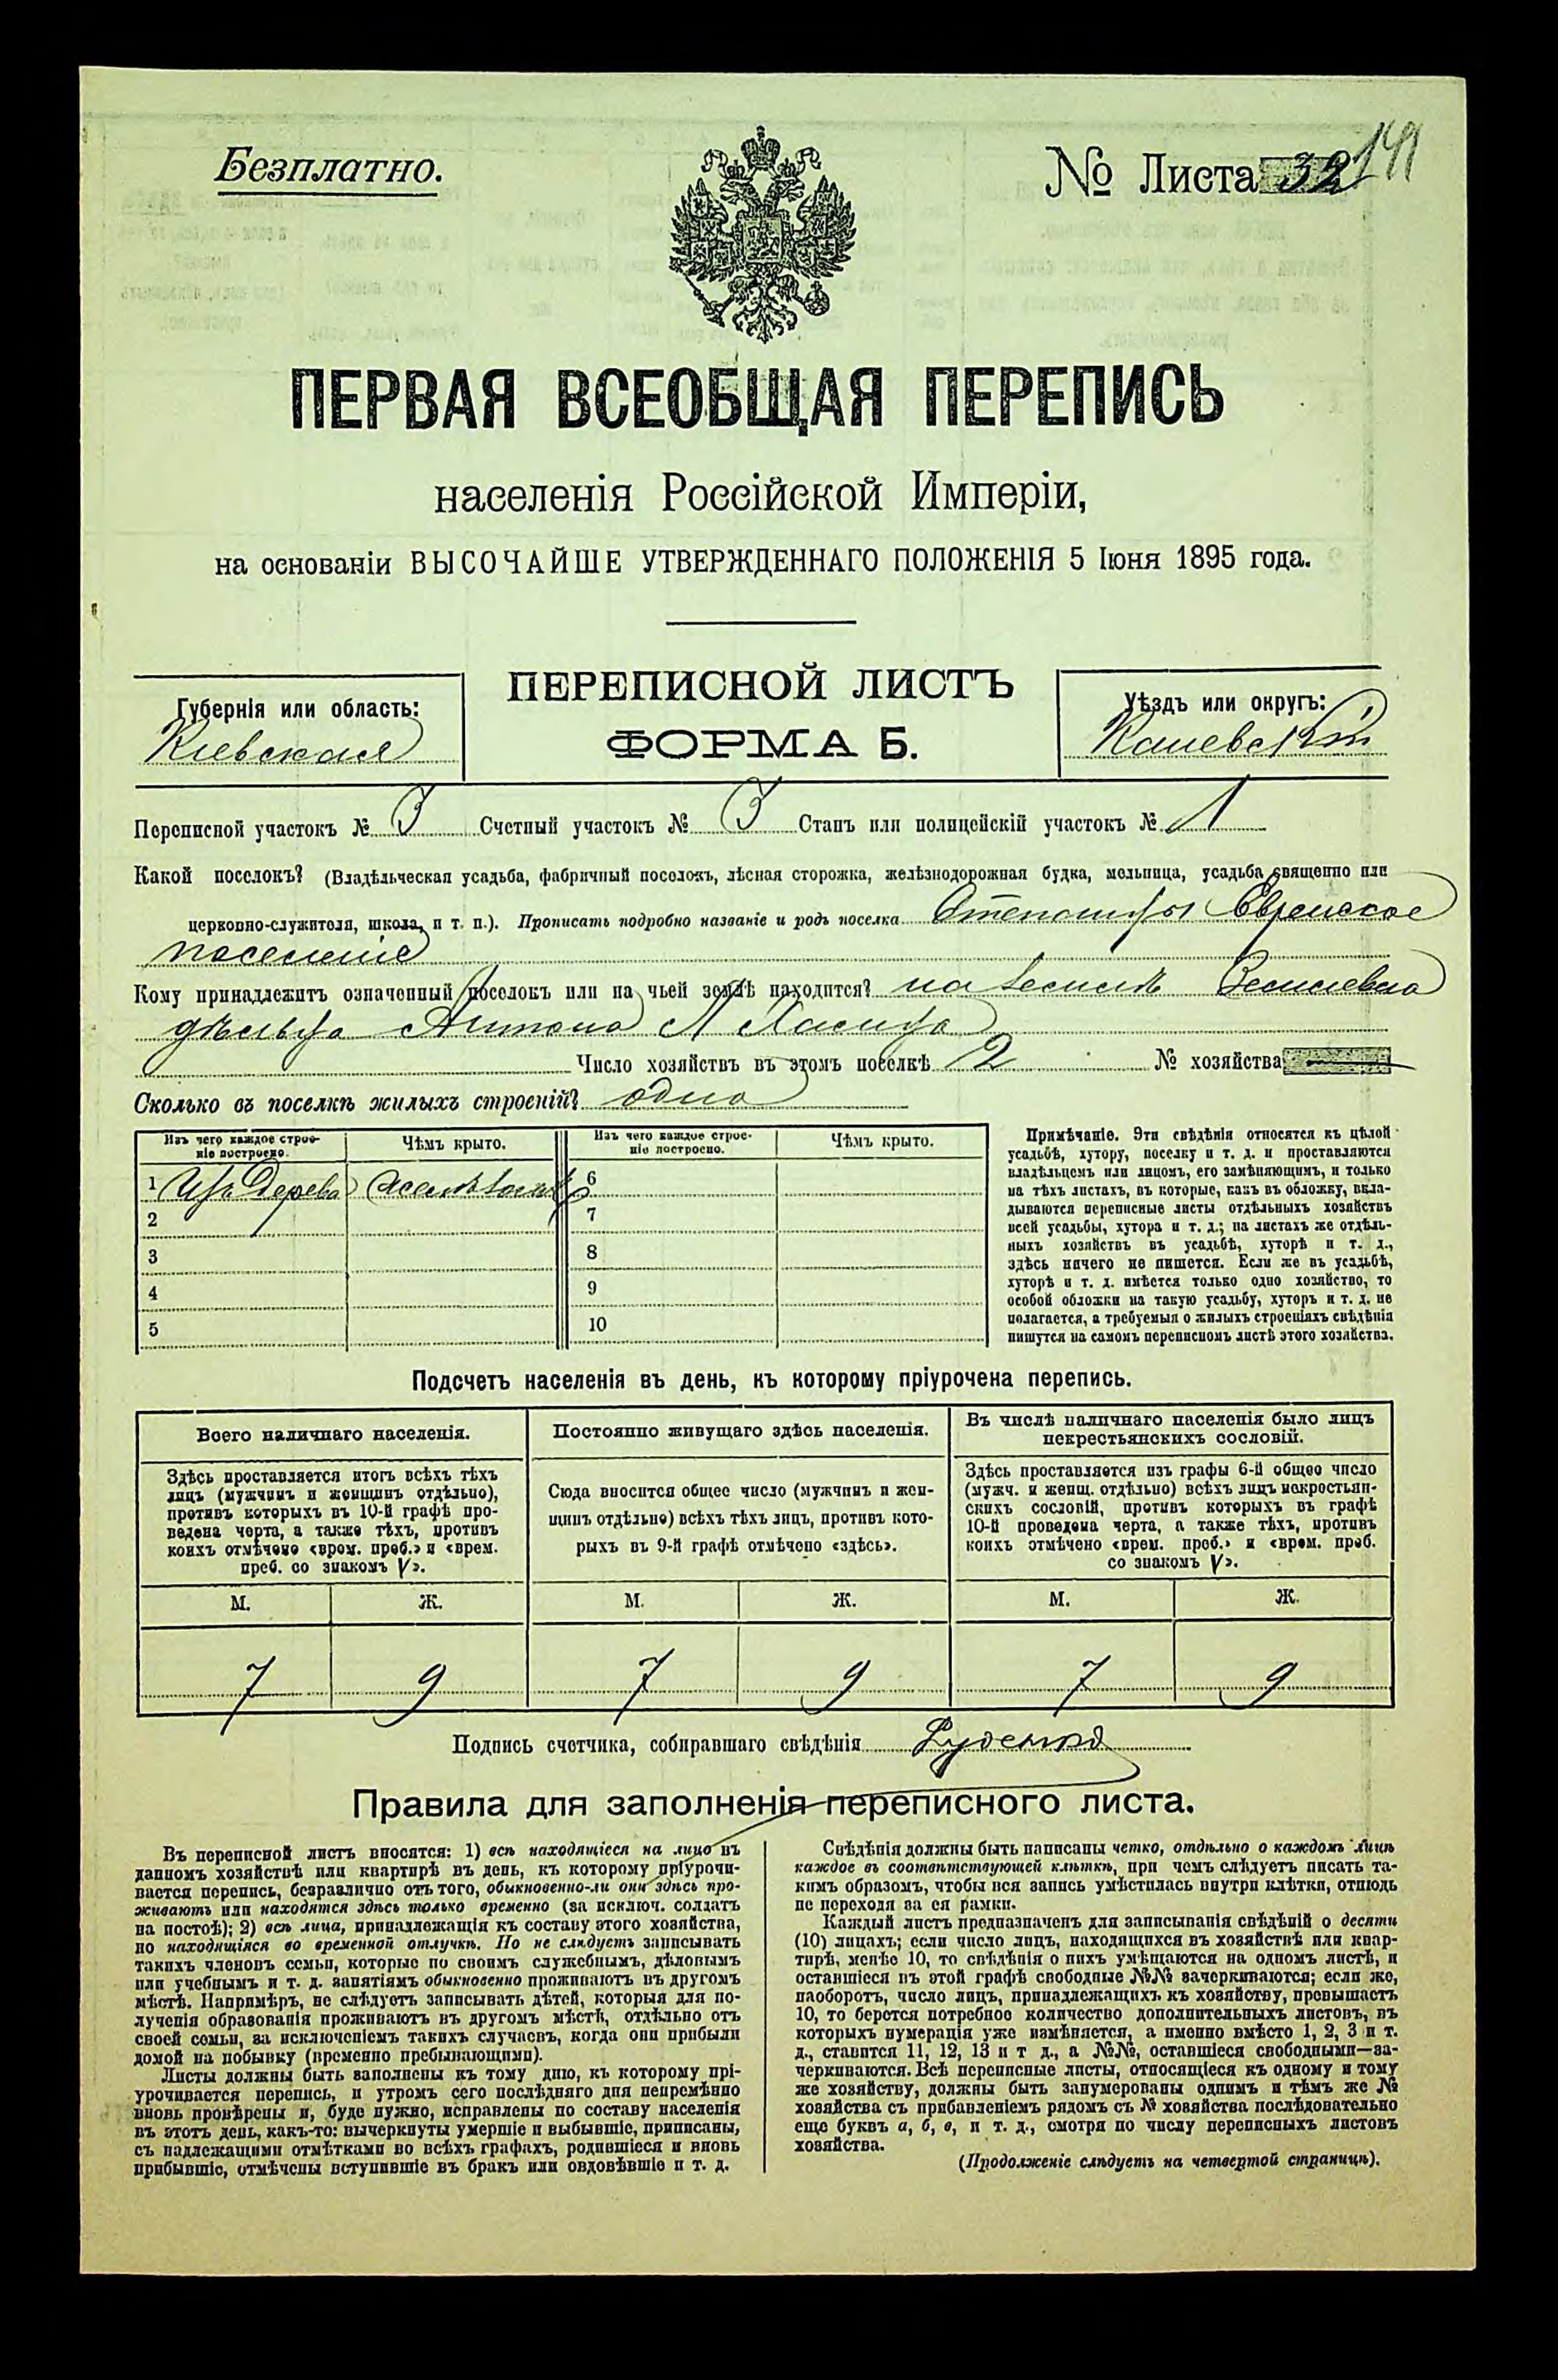 Безплатно.
№ Листа 32 141
ПЕРВАЯ ВСЕОБЩАЯ ПЕРЕПИСЬ
населенія Россійской Имперіи,
на основаніи ВЫСОЧАЙШЕ УТВЕРЖДЕННАГО ПОЛОЖЕНІЯ 5 Іюня 1895 года.
Губернія или область:
Кіевская
ПЕРЕПИСНОЙ ЛИСТЪ
ФОРМА Б.
Уѣздъ или округъ:
Каневскій
Переписной участокъ № 3 Счетный участокъ № 3 Станъ или полицейскій участокъ № 1
Какой поселокъ? (Владѣльческая усадьба, фабричный поселокъ, лѣсная сторожка, желѣзнодорожная будка, мельница, усадьба священно или
церковно-служителя, школа, и т. п.). Прописать подробно названіе и родъ поселка Степанцы Еврейское
поселеніе
Кому принадлежитъ означенный поселокъ или на чьей землѣ находится? на землѣ Землевла
дѣльца Антона
Число хозяйствъ въ этомъ поселкѣ 2 № хозяйства
Сколько въ поселкѣ жилыхъ строеній? одно
Изъ чего каждое строе-
ніе построено.
Чѣмъ крыто.
Изъ чего каждое строе-
ніе построено.
Чѣмъ крыто.
1 Изъ дерева желѣзомъ
2
3
4
5
6
7
8
9
10
Примѣчаніе. Эти свѣдѣнія относятся къ цѣлой
усадьбѣ, хутору, поселку и т. д. и проставляются
владѣльцемъ или лицомъ, его замѣняющимъ, и только
на тѣхъ листахъ, въ которые, какъ въ обложку, вкла-
дываются переписные листы отдѣльныхъ хозяйствъ
всей усадьбы, хутора и т. д.; на листахъ же отдѣль-
ныхъ хозяйствъ въ усадьбѣ, хуторѣ и т. д.,
здѣсь ничего не пишется. Если же въ усадьбѣ,
хуторѣ и т. д. имѣется только одно хозяйство, то
особой обложки на такую усадьбу, хуторъ и т. д. не
полагается, а требуемыя о жилыхъ строеніяхъ свѣдѣнія
пишутся на самомъ переписномъ листѣ этого хозяйства.
Подсчетъ населенія въ день, къ которому пріурочена перепись.
Всего наличнаго населенія.
Здѣсь проставляется итогъ всѣхъ тѣхъ
лицъ (мужчинъ и женщинъ отдѣльно),
противъ которыхъ въ 10-й графѣ про-
ведена черта, а также тѣхъ, противъ
коихъ отмѣчено «врем. преб.» и «врем.
преб. со знакомъ V».
Постоянно живущаго здѣсь населенія.
Сюда вносится общее число (мужчинъ и жен-
щинъ отдѣльно) всѣхъ тѣхъ лицъ, противъ кото-
рыхъ въ 9-й графѣ отмѣчено «здѣсь».
Въ числѣ наличнаго населенія было лицъ
некрестьянскихъ сословій.
Здѣсь проставляется изъ графы 6-й общее число
(мужч. и женщ. отдѣльно) всѣхъ лицъ некрестьян-
скихъ сословій, противъ которыхъ въ графѣ
10-й проведена черта, а также тѣхъ, противъ
коихъ отмѣчено «врем. преб.» и «врем. преб.
со знакомъ V».
М. Ж. М. Ж. М. Ж.
7 9 7 9 7 9
Подпись счетчика, собиравшаго свѣдѣнія Руденко
Правила для заполненія переписного листа.
Въ переписной листъ вносятся: 1) всѣ находящіеся на лицо въ
данномъ хозяйствѣ или квартирѣ въ день, къ которому пріурочи-
вается перепись, безразлично отъ того, обыкновенно-ли они здѣсь про-
живаютъ или находятся здѣсь только временно (за исключ. солдатъ
на постоѣ); 2) всѣ лица, принадлежащія къ составу этого хозяйства,
но находящіяся во временной отлучкѣ. Но не слѣдуетъ записывать
такихъ членовъ семьи, которые по своимъ служебнымъ, дѣловымъ
или учебнымъ и т. д. занятіямъ обыкновенно проживаютъ въ другомъ
мѣстѣ. Напримѣръ, не слѣдуетъ записывать дѣтей, которыя для по-
лученія образованія проживаютъ въ другомъ мѣстѣ, отдѣльно отъ
своей семьи, за исключеніемъ такихъ случаевъ, когда они прибыли
домой на побывку (временно пребывающими).
Листы должны быть заполнены къ тому дню, къ которому прі-
урочивается перепись, и утромъ сего послѣдняго дня непремѣнно
вновь провѣрены и, буде нужно, исправлены по составу населенія
въ этотъ день, какъ-то: вычеркнуты умершіе и выбывшіе, приписаны,
съ надлежащими отмѣтками во всѣхъ графахъ, родившіеся и вновь
прибывшіе, отмѣчены вступившіе въ бракъ или овдовѣвшіе и т. д.
Свѣдѣнія должны быть написаны четко, отдѣльно о каждомъ лицѣ
каждое въ соотвѣтствующей клѣткѣ, при чемъ слѣдуетъ писать та-
кимъ образомъ, чтобы вся запись умѣстилась внутри клѣтки, отнюдь
не переходя за ея рамки.
Каждый листъ предназначенъ для записыванія свѣдѣній о десяти
(10) лицахъ; если число лицъ, находящихся въ хозяйствѣ или квар-
тирѣ, менѣе 10, то свѣдѣнія о нихъ умѣщаются на одномъ листѣ, и
оставшіеся въ этой графѣ свободные №№ зачеркиваются; если же,
наоборотъ, число лицъ, принадлежащихъ къ хозяйству, превышаетъ
10, то берется потребное количество дополнительныхъ листовъ, въ
которыхъ нумерація уже измѣняется, а именно вмѣсто 1, 2, 3 и т.
д., ставится 11, 12, 13 и т д., а №№, оставшіеся свободными—за-
черкиваются. Всѣ переписные листы, относящіеся къ одному и тому
же хозяйству, должны быть занумерованы однимъ и тѣмъ же №
хозяйства съ прибавленіемъ рядомъ съ № хозяйства послѣдовательно
еще буквъ а, б, в, и т. д., смотря по числу переписныхъ листовъ
хозяйства.
(Продолженіе слѣдуетъ на четвертой страницѣ).